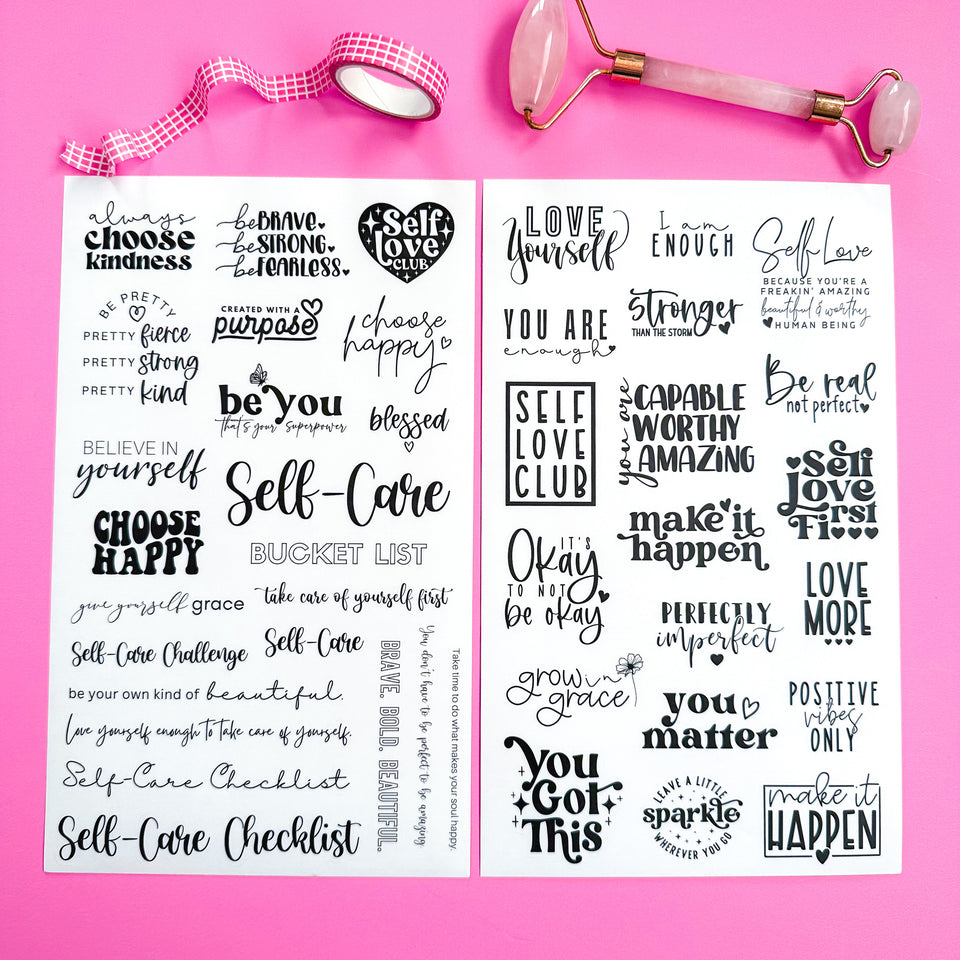 always
choose
kindness
be BRAVE.
be STRONG.
be FEARLESS.
Self
love
CLUB
BE PRETTY
PRETTY fierce
PRETTY strong
PRETTY kind
CREATED WITH A
purpose
choose
happy
be you
that's your superpower
blessed
BELIEVE IN
yourself
Self-Care
CHOOSE
HAPPY
BUCKET LIST
give yourself grace
take care of yourself first
Self-Care Challenge
Self-Care
be your own kind of beautiful.
Love yourself enough to take care of yourself.
Self-Care Checklist
Self-Care Checklist
BRAVE. BOLD. BEAUTIFUL.
You don't have to be perfect to be amazing
Take time to do what makes your soul happy.
LOVE
Yourself
I am
ENOUGH
Self Love
BECAUSE YOU'RE A
FREAKIN' AMAZING
beautiful & worthy
HUMAN BEING
YOU ARE
enough
stronger
THAN THE STORM
SELF
LOVE
CLUB
you are
CAPABLE
WORTHY
AMAZING
Be real
not perfect
Self
Love
First
make it
happen
IT'S
Okay
TO NOT
be okay
LOVE
MORE
PERFECTLY
imperfect
grow in
grace
you
matter
POSITIVE
vibes
ONLY
You
Got
This
LEAVE A LITTLE
sparkle
WHEREVER YOU GO
make it
HAPPEN